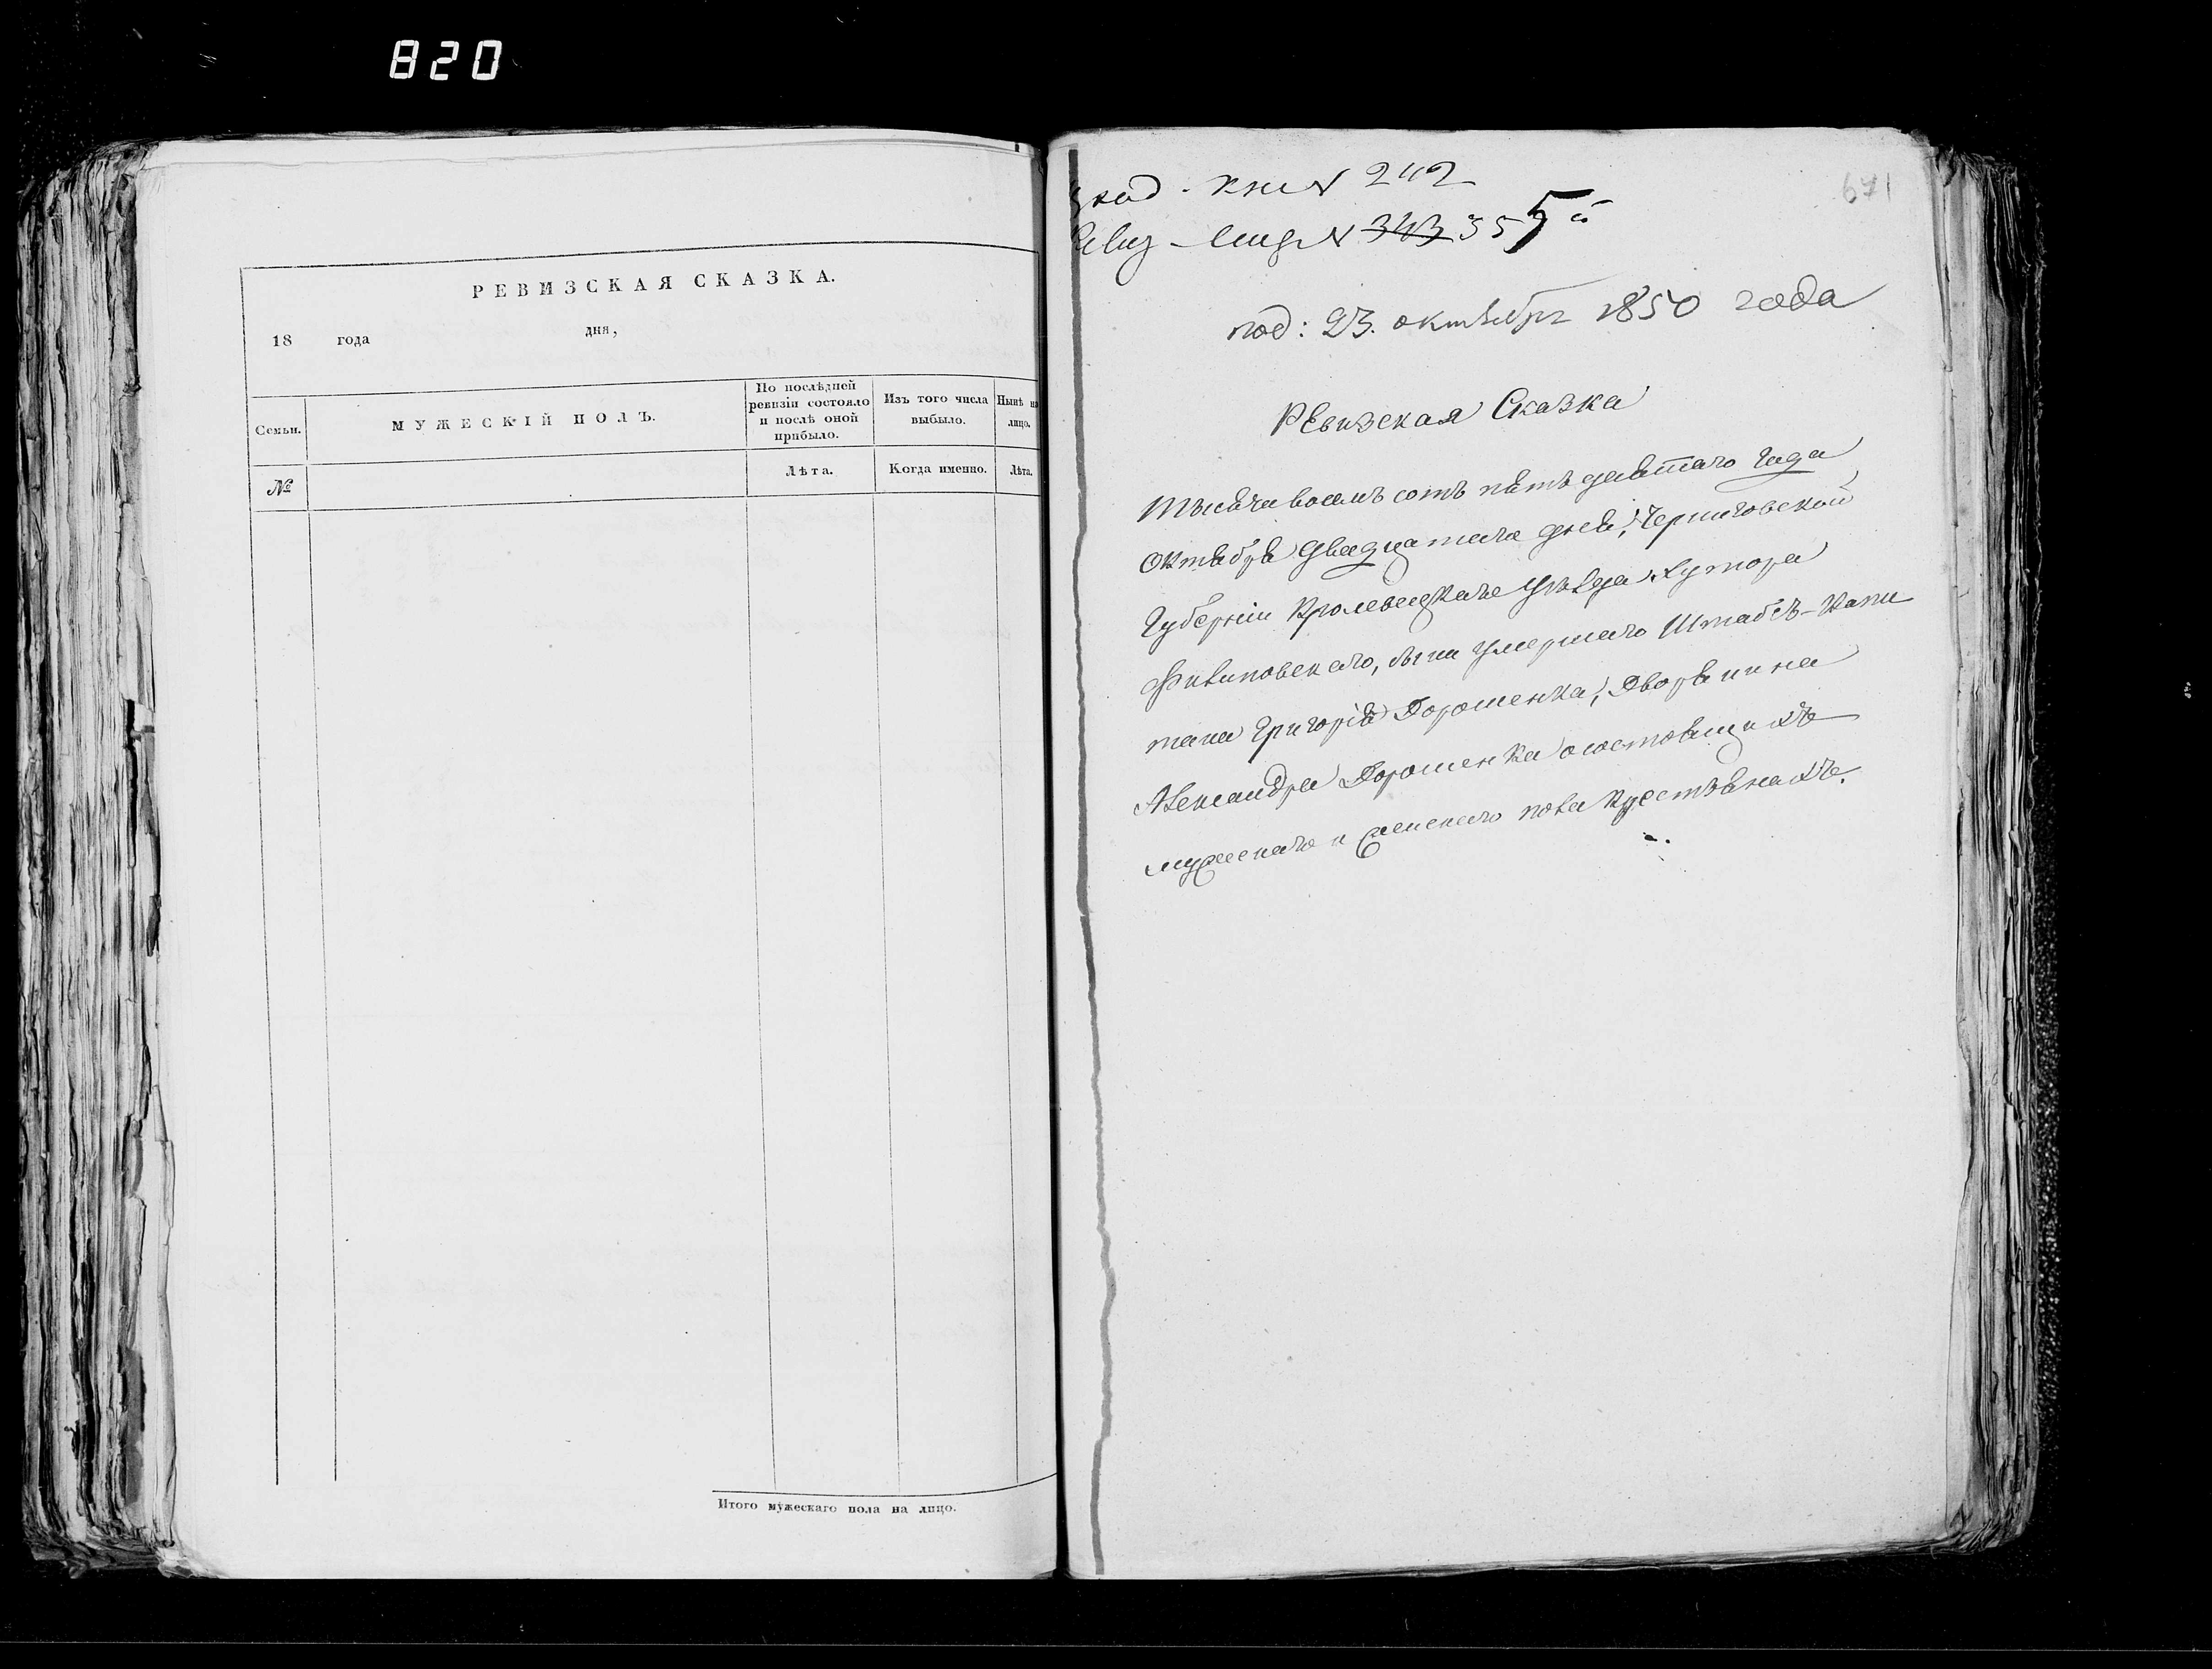 820
РЕВИЗСКАЯ СКАЗКА.
18 года дня,
Семьи.
МУЖЕСКІЙ ПОЛЪ.
По послѣдней ревизіи состояло и послѣ оной прибыло.
Изъ того числа выбыло.
Нынѣ на лицо.
№
Лѣта.
Когда именно.
Лѣта.
Итого мужескаго пола на лицо.
671
кни № 242
№ 343 355
под: 23. октября 1850 года
Ревизская Сказка
Тысяча восемъ сотъ пятъ десятаго Года
Октября Двадцатаго дня, Черниговской
Губерніи Кролевецкаго Уѣзда Хутора
Филиповскаго, сына умершаго Штабсъ-Капи
тана Григорія Дорошенка, Дворянина
Александра Дорошенка о состоящихъ
мужескаго и женскаго пола крестьянахъ.